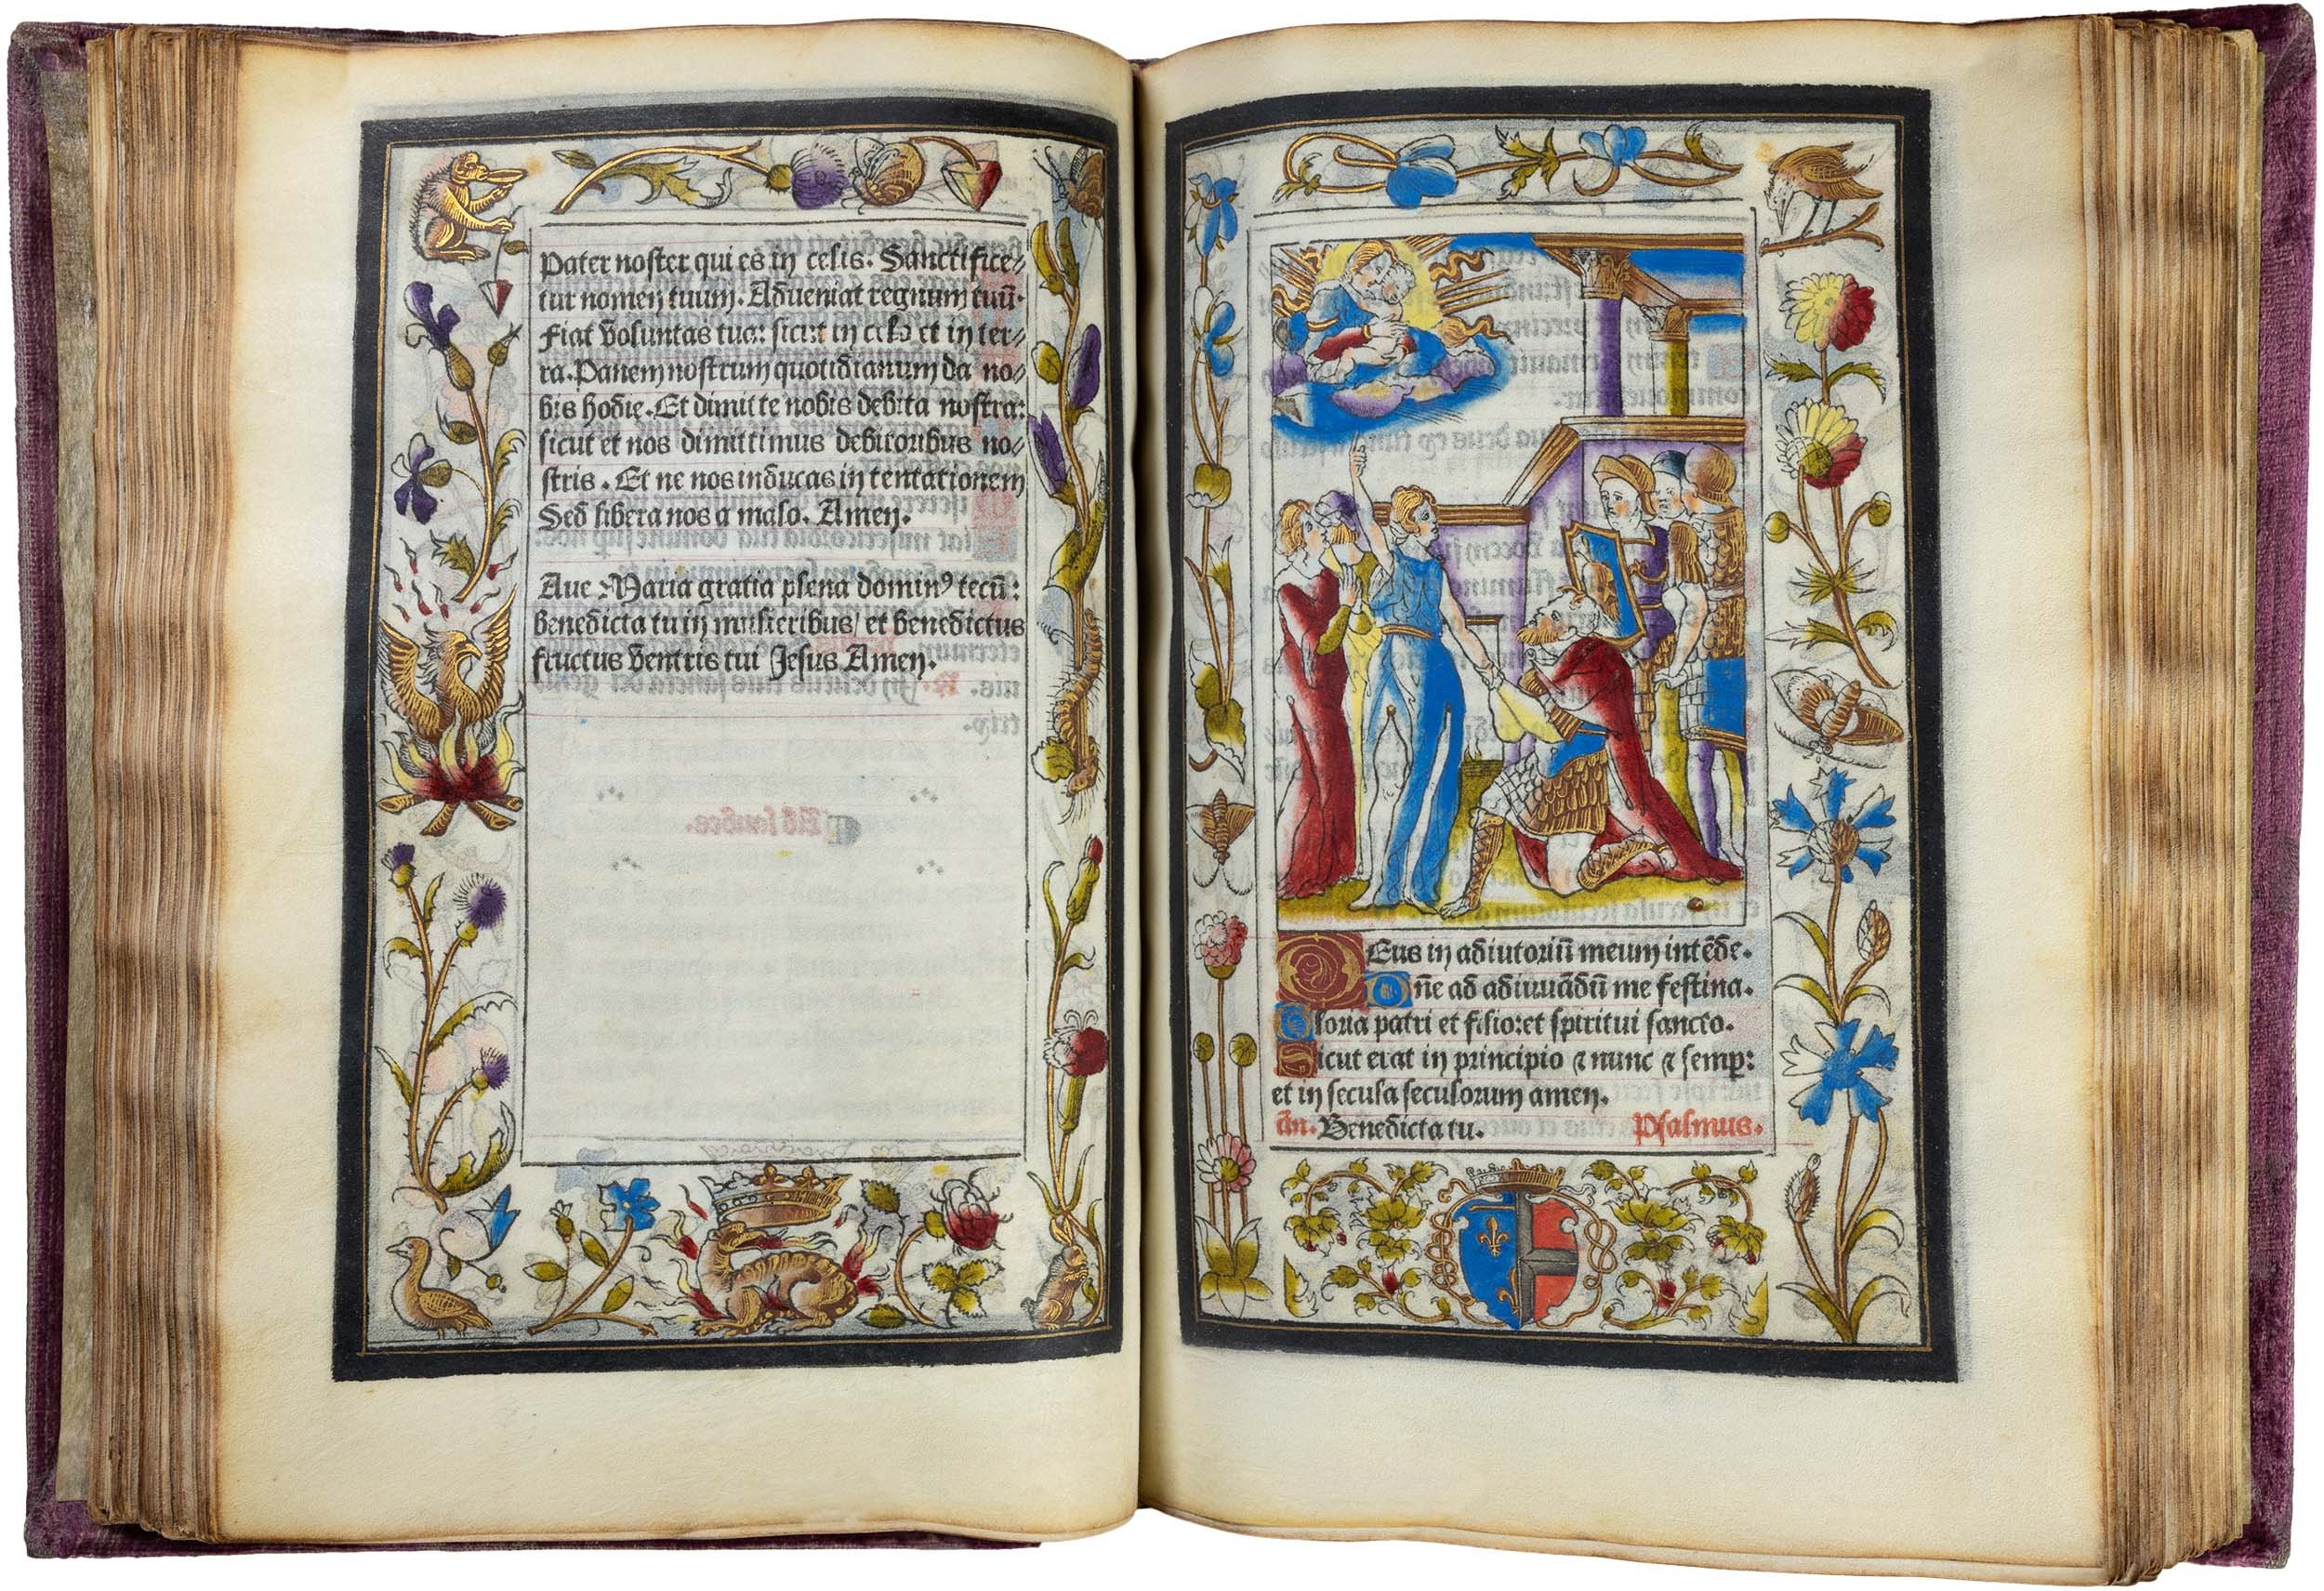 Pater noster qui es in celis. Sanctifice⸗
tur nomen tuum. Adueniat regnum tuū.
Fiat voluntas tua: sicut in celo et in ter⸗
ra. Panem nostrum quotidianum da no⸗
bis hodie. Et dimitte nobis debita nostra:
sicut et nos dimittimus debitoribus no⸗
stris. Et ne nos inducas in tentationem
Sed libera nos a malo. Amen.
Aue Maria gratia plena dominꝰ tecū:
benedicta tu in mulieribus/ et benedictus
fructus ventris tui Jesus Amen.
DEus in adiutoriū meum intēde.
Dñe ad adiuuādū me festina.
Gloria patri et filio: et spiritui sancto.
Sicut erat in principio ⁊ nunc ⁊ semp:
et in secula seculorum amen.
Añ. Benedicta tu. Psalmus.